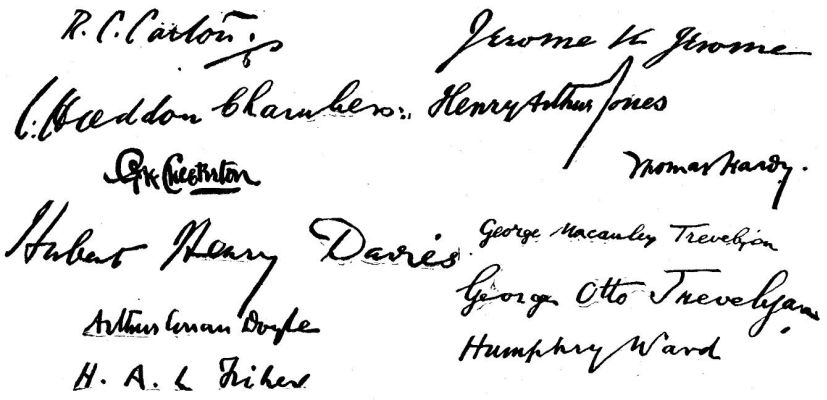 R. C. Carton.
C. Haddon Chambers.
G K Chesterton
Hubert Henry Davies
Arthur Conan Doyle
H. A. L Fisher
Jerome K Jerome
Henry Arthur Jones
Thomas Hardy.
George Macaulay Trevelyan
George Otto Trevelyan
Humphry Ward